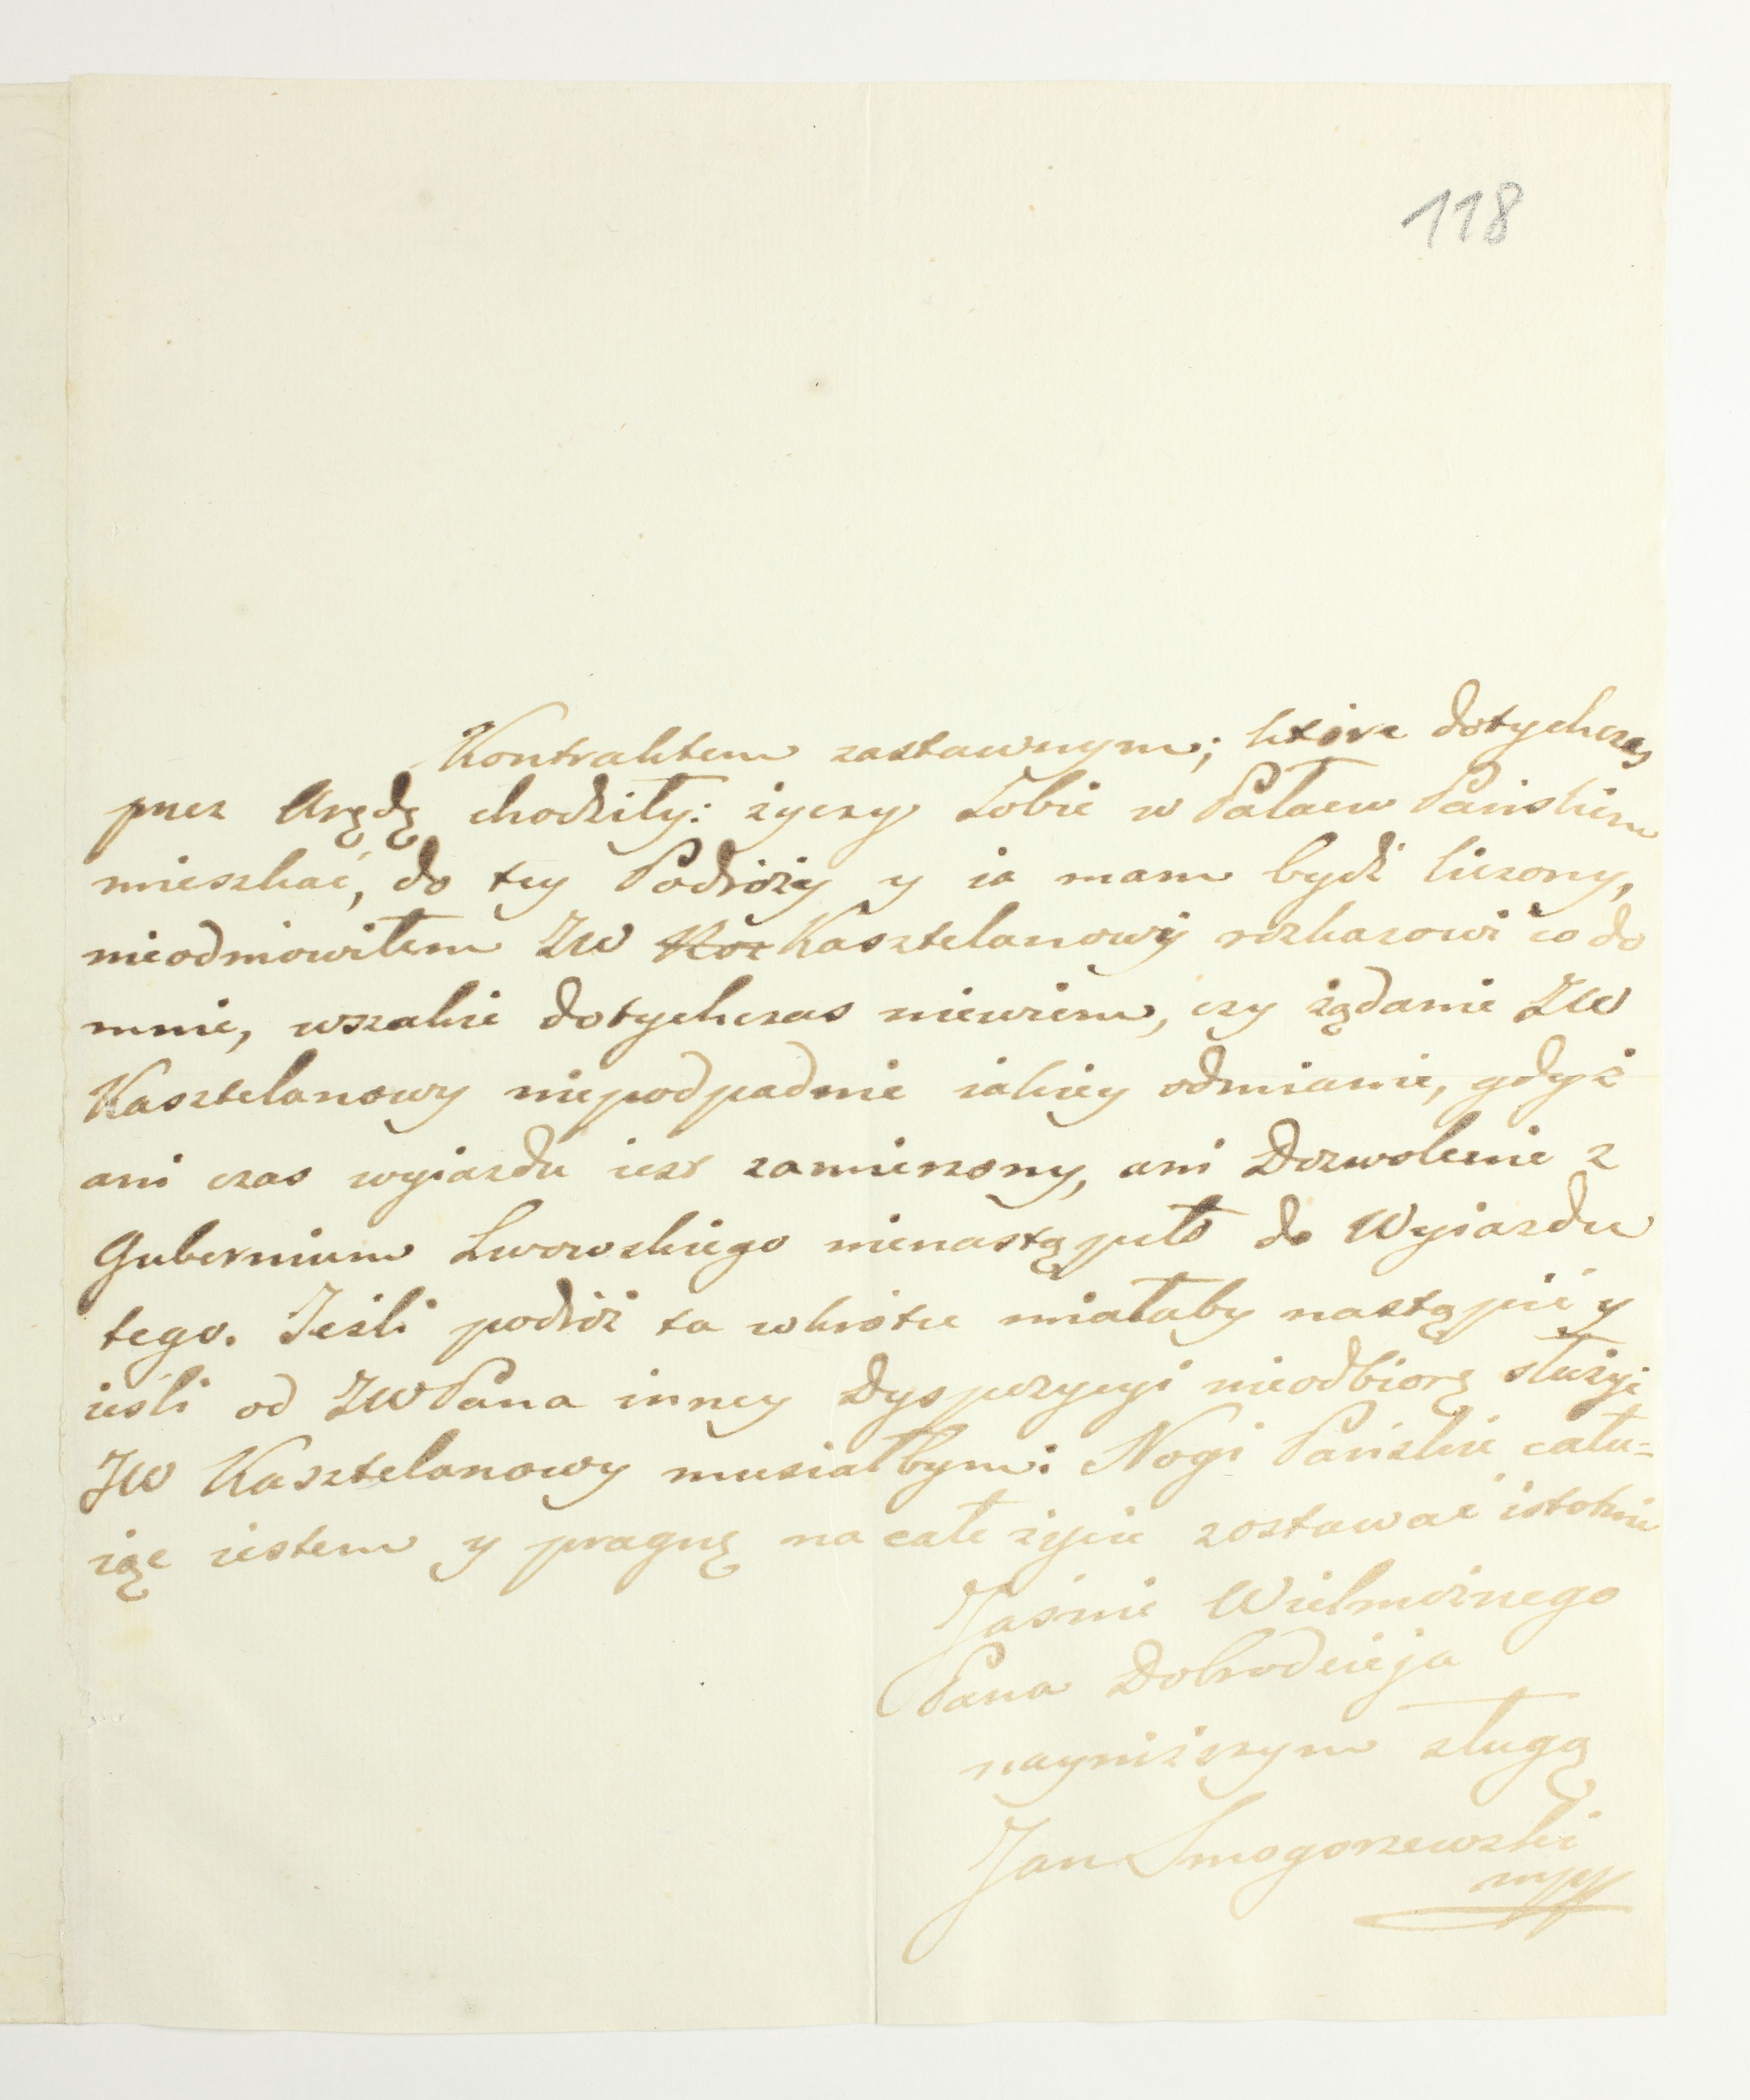 118
Kontraktem zastawnym; które dotychczas
przez Arędę chodziły: życzy Sobie w Pałacu Pańskim
mieszkać, do tey Podróży y ia mam bydź liczony,
nieodmowiłem JW Kasztelanowy rozkazowi co do
mnie, wszakże dotychczas niewiem, czy żądanie JW
Kasztelanowy niepodpadnie iakiey odmianie, gdyż
ani czas wyiazdu iest zamierzony, ani Dozwolenie z
Gubernium Lwowskiego nienastąpiło do Wyiazdu
tego. Jeśli podróż ta wkrótce miałaby nastąpić y
ieśli od JWPana inney Dyspozycyi nieodbiorę służyć
JW Kasztelanowy musiałbym: Nogi Pańskie cału=
iąc iestem y pragnę na całe życie zostawać istotnie
Jaśnie Wielmożnego
Pana Dobrodzieja
nayniższym sługą
Jan Smogorzewski
mpp